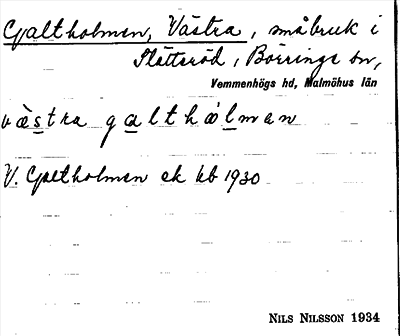 Galtholmen, Västra, småbruk i
Slättaröd, Börringe sn,
Vemmenhögs hd, Malmöhus län
væ̀stra galthólman
V. Galtholmen ek kb 1930
NILS NILSSON 1934